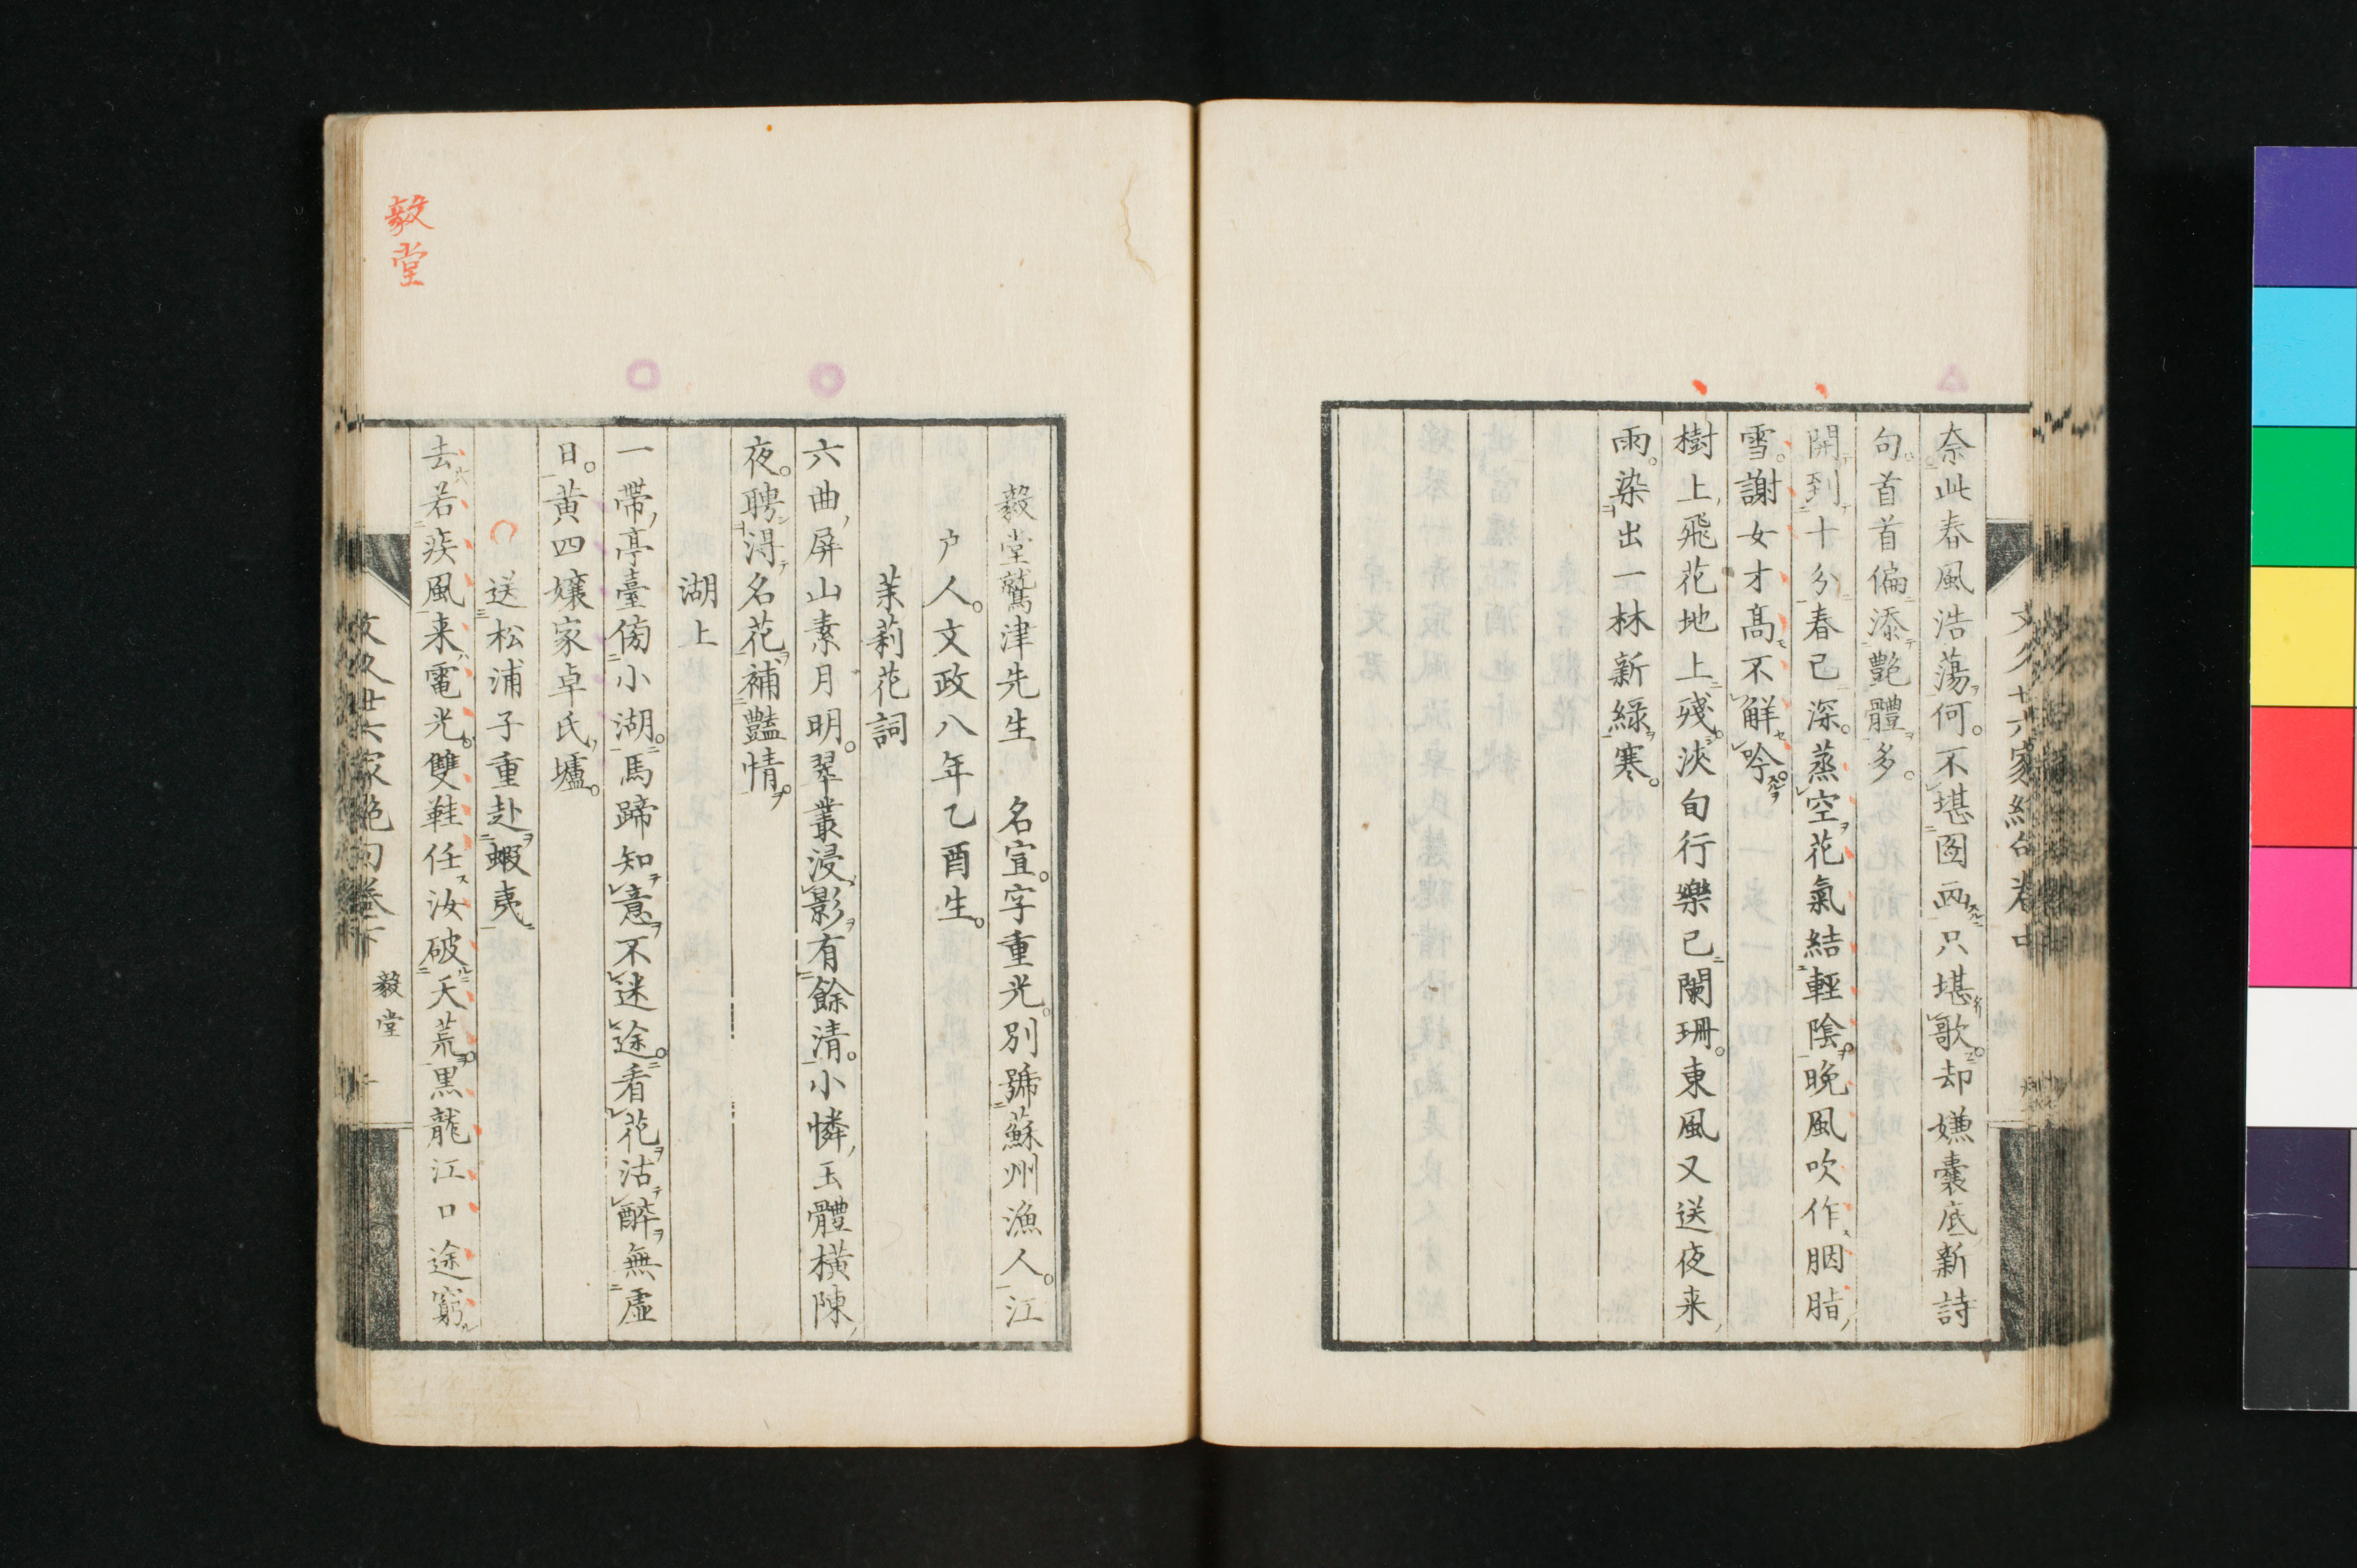 奈此春風浩蕩何。不堪図画只堪歌。却嫌嚢底新詩
句。首首偏添艶體多。
開到十分春已深。蒸空花氣結輕陰。晩風吹作胭脂
雪。謝女才髙不解吟。
樹上飛花地上殘。淡旬行樂已闌珊。東風又送夜来
雨。染出一林新緑寒。
毅堂
毅堂鷲津先生 名宣。字重光。別號蘇州漁人。江
戸人。文政八年乙酉生。
茉莉花詞
六曲屏山素月明。翠叢浸影有餘清。小憐玉體橫陳
夜。聘得名花補豔情。
湖上
一帶亭臺傍小湖。馬蹄知意不迷途。看花沽醉無虛
日。黄四嬢家卓氏壚。
送松浦子重赴蝦夷
去若疾風来電光。雙鞋任汝破天荒。黒龍江口途窮
毅堂